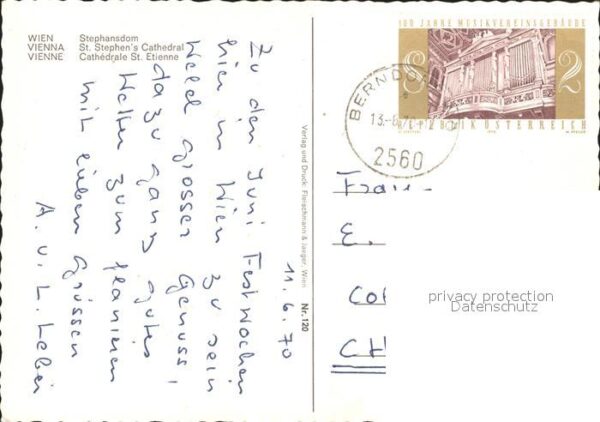 WIEN Stephansdom
VIENNA St. Stephen's Cathedral
VIENNE Cathédrale St. Etienne
11.6.70
Zu den Juni Festwochen
hier in Wien zu sein
welch grosser Genuss,
dazu ganz gutes
Wetter zum
mit lieben Grüssen
A. u. L.
Verlag und Druck: Fleischmann & Jaeger, Wien
Nr. 120
100 JAHRE MUSIKVEREINSGEBÄUDE
S 2
REPUBLIK ÖSTERREICH
BERNDORF
13.-6.70
2560
Frau
E.
Co
CH
privacy protection
Datenschutz